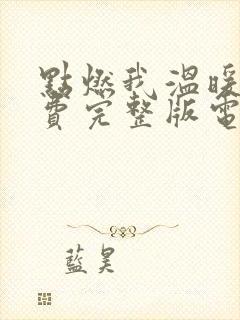 點燃我溫暖
費完整版電
藍昊